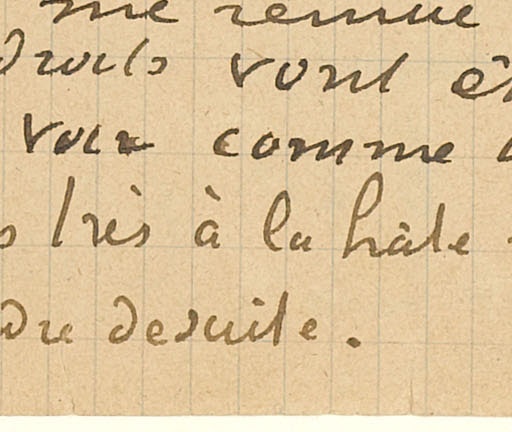 me remue
droits vont êt
voir comme
s très à la hâte
dre desuite.